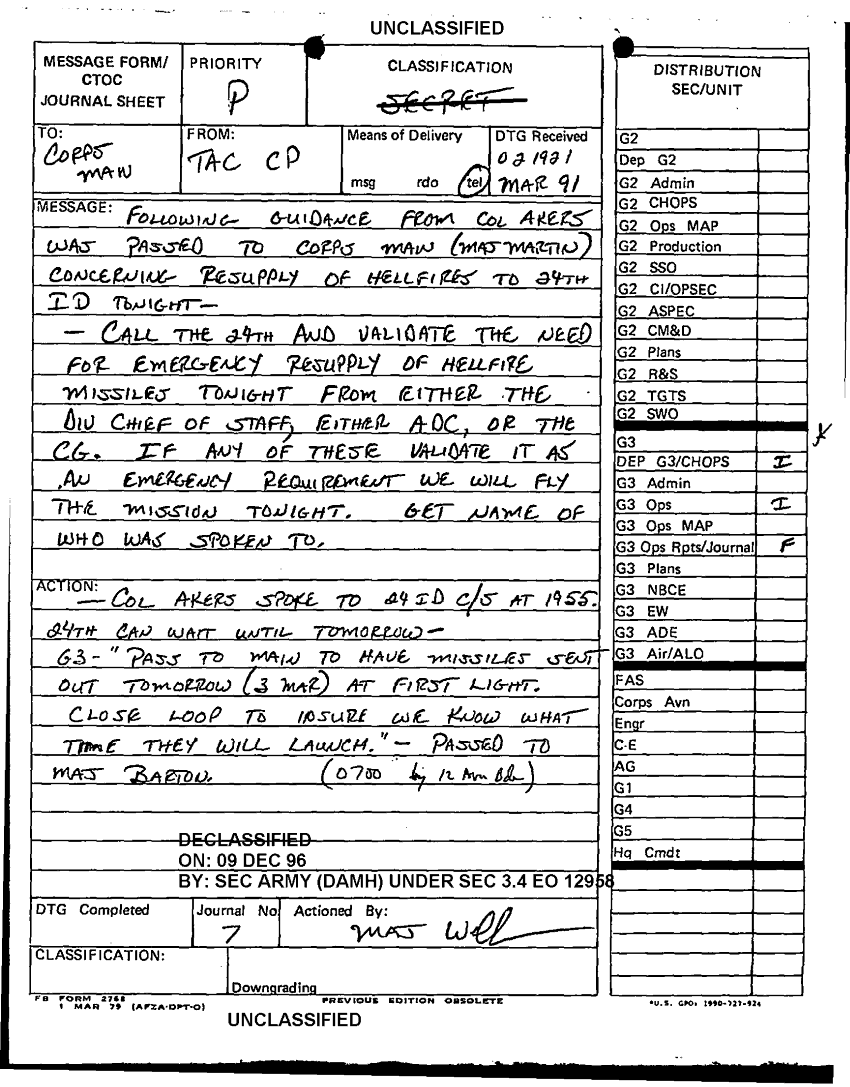 UNCLASSIFIED
MESSAGE FORM/
CTOC
JOURNAL SHEET
PRIORITY
P
CLASSIFICATION
SECRET
DISTRIBUTION
SEC/UNIT
TO:
CORPS
MAIN
FROM:
TAC CP
Means of Delivery
msg rdo tel
DTG Received
021921
MAR 91
MESSAGE: FOLLOWING GUIDANCE FROM COL AKERS
WAS PASSED TO CORPS MAIN (MAJ MARTIN)
CONCERNING RESUPPLY OF HELLFIRES TO 24TH
ID TONIGHT—
— CALL THE 24TH AND VALIDATE THE NEED
FOR EMERGENCY RESUPPLY OF HELLFIRE
MISSILES TONIGHT FROM EITHER THE
DIV CHIEF OF STAFF, EITHER ADC, OR THE
CG. IF ANY OF THESE VALIDATE IT AS
AN EMERGENCY REQUIREMENT WE WILL FLY
THE MISSION TONIGHT. GET NAME OF
WHO WAS SPOKEN TO.
ACTION:
— COL AKERS SPOKE TO 24 ID C/S AT 1955.
24TH CAN WAIT UNTIL TOMORROW—
G3-"PASS TO MAIN TO HAVE MISSILES SENT
OUT TOMORROW (3 MAR) AT FIRST LIGHT.
CLOSE LOOP TO INSURE WE KNOW WHAT
TIME THEY WILL LAUNCH."— PASSED TO
MAJ BARTON. (0700 by 12 Avn Bde)
DECLASSIFIED
ON: 09 DEC 96
BY: SEC ARMY (DAMH) UNDER SEC 3.4 EO 12958
DTG Completed
Journal No.
7
Actioned By:
MAJ
CLASSIFICATION:
Downgrading
G2
Dep G2
G2 Admin
G2 CHOPS
G2 Ops MAP
G2 Production
G2 SSO
G2 CI/OPSEC
G2 ASPEC
G2 CM&D
G2 Plans
G2 R&S
G2 TGTS
G2 SWO
G3
DEP G3/CHOPS I
G3 Admin
G3 Ops I
G3 Ops MAP
G3 Ops Rpts/Journal F
G3 Plans
G3 NBCE
G3 EW
G3 ADE
G3 Air/ALO
FAS
Corps Avn
Engr
C-E
AG
G1
G4
G5
Hq Cmdt
FB FORM 2768
1 MAR 79 (AFZA-DPT-O)
PREVIOUS EDITION OBSOLETE
*U.S. GPO: 1990-727-924
UNCLASSIFIED